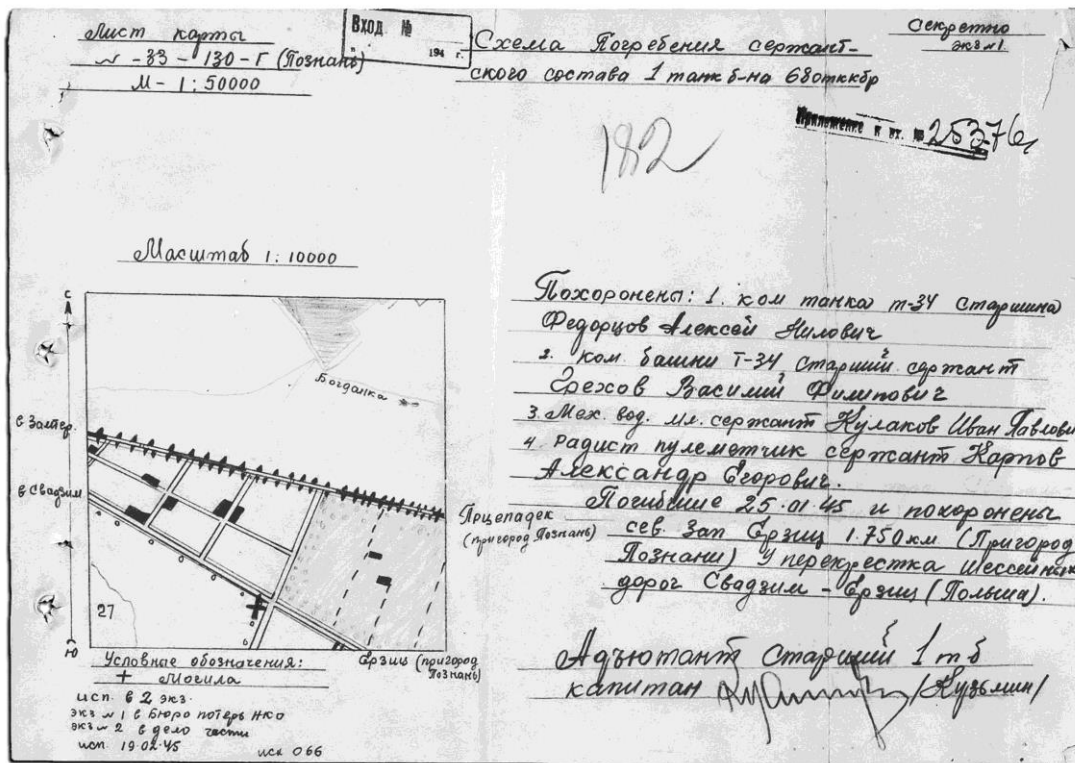 Лист карты
N-33-130-Г (Познань)
М-1:50000
Вход №
194 г.
Схема Погребения сержант-
ского состава 1 танк б-на 68отккбр
Секретно
экз №1
Приложение к вх. № 25376с
182
Масштаб 1:10000
С
Богданка
в Залтер.
в Свадзим.
Прцепадек
(пригород Познань)
27
Ю
Ерзиц (пригород
Познань)
Условные обозначения:
+ Могила
исп. в 2 экз.
экз № 1 в Бюро потерь НКО
экз № 2 в дело части
исп. 19.02.45
исх 066
Похоронены: 1. ком танка т-34 старшина
Федорцов Алексей Нилович
2. ком. башни Т-34, старший сержант
Грехов Василий Филипович
3. Мех. вод. мл. сержант Кулаков Иван Павлови
4. Радист пулеметчик сержант Карпов
Александр Егорович.
Погибшие 25.01.45 и похоронены
сев. зап Ерзиц 1.750км (Пригород
Познани) у перекрестка шессейных
дорог Свадзим - Ерзиц (Польша).
Адъютант старший 1 тб
капитан /Кузьмин/